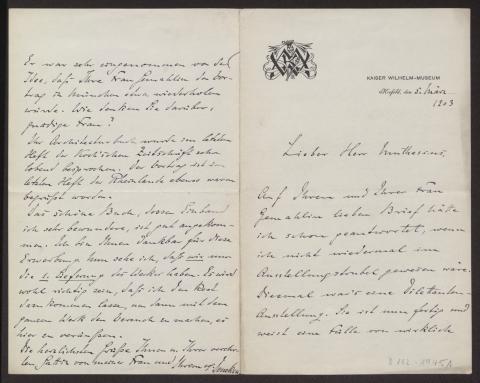 KAISER WILHELM-MUSEUM
Krefeld, den 5. März
1903
Lieber Herr Muthesius,
Auf Ihren und Ihrer Frau
Gemahlin lieben Brief hätte
ich schon geantwortet, wenn
ich nicht wiedermal im
Ausstellungstrubel gewesen wäre.
Diesmal war's eine Dilettanten-
Ausstellung. Sie ist nun fertig und
weist eine Fülle von wirklich
Er war sehr eingenommen von der
Idee, daß Ihre Frau Gemahlin den Vor-
trag in München etwa wiederholen
würde. Wie denken Sie darüber,
gnädige Frau?
Ihr Architekturbuch wurde im letzten
Heft der Zeitschrift sehr
lobend besprochen. Der Vortrag ist im
letzten Heft der Rheinlande ebenso warm
begrüßt worden.
Das schöne Buch, dessen Einband
ich sehr bewundere, ist gut angekom-
men. Ich bin Ihnen dankbar für diese
Erwerbung. Nun sehe ich, daß wir nur
die 1. Lieferung des Werkes haben. Es wird
wohl richtig sein, daß ich den Rest
dazu kommen lasse, um dann mit dem
ganzen Werk den Versuch zu machen, es
hier zu veräußern.
Die herzlichsten Grüße Ihnen u. Ihrer verehr-
ten Gattin von meiner Frau und Ihrem erg. Deneken